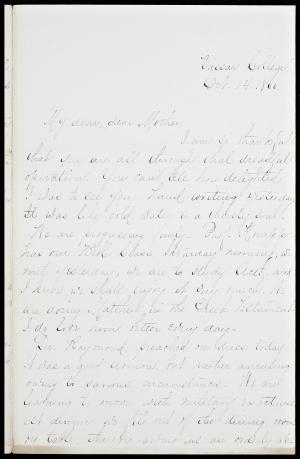 Vassar College
Oct. 14. 1866
My dear, dear Mother
I am so thankful
that you are all through that dreadful
operation. You can't tell how delighted
I was to see your hand writing yesterday
It was like cold water to a thirsty soul.
We are progressing finely. Prof. Knapp
has our Bible Class Sunday morning, we
met yesterday, we are to study Acts, and
I know we shall enjoy it very much. We
are doing Matthew in the Greek Testament
I do love mine better every day.
Dr. Raymond preached on dress today
It was a good sermon but rather amusing
owing to various circumstances. We are
learning to move with military exactness
At dinner we file out of the dining room
by table, thereby giving us an orderly